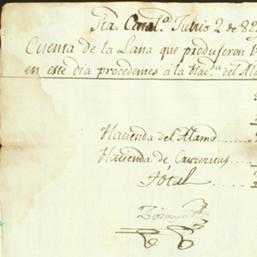 Sta. Catal.ª Junio 2 de 82
Cuenta de la Lana que produjeron l
en este dia procedemos á la Hac.da del Ala
Hacienda del Alamo
Hacienda de Cruzeritas
Total